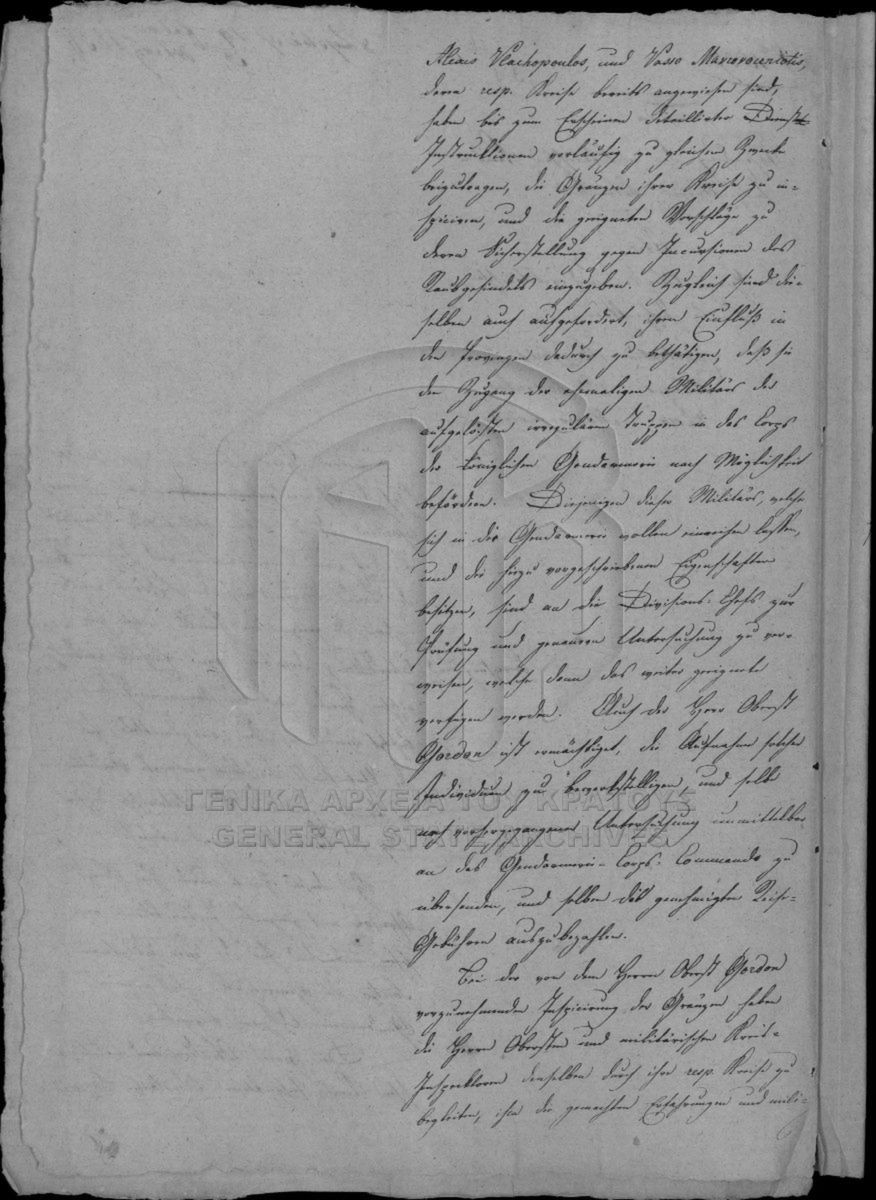 Alexis Vlachopoulos, und Vasso Mavrovuniotis,
deren resp. Kreise bereits angewiesen sind,
haben bis zum Erscheinen detaillirter Dienst
Instruktionen vorläufig zu gleichem Zwecke
beizutragen, die Gränzen ihrer Kreise zu in-
spiciren, und die geeigneten Vorschläge zu
deren Sicherstellung gegen Incursionen des
Raubgesindels einzugeben. Zugleich sind die-
selben auch aufgefordert, ihren Einfluß in
den Provinzen dadurch zu bethätigen, daß sie
den Zugang der ehemaligen Militärs der
aufgelösten irregulären Truppen in das Corps
der königlichen Gendarmerie nach Möglichkeit
befördern. Diejenigen dieser Militärs, welche
sich in die Gendarmerie wollen einreihen lassen,
und die hiezu vorgeschriebenen Eigenschaften
besitzen, sind an die Divisions-Chefs zur
Prüfung und genauen Untersuchung zu ver-
weisen, welche dann das weiter geeignete
verfügen werden. Auch der Herr Oberst
Gordon ist ermächtiget, die Aufnahme solcher
Individuen zu bewerkstelligen, und selbe
nach vorhergegangener Untersuchung unmittelbar
an das Gendarmerie-Corps-Commando zu
übersenden, und selben die genehmigten Reise-
Gebühren auszubezahlen.
Bei der von dem Herrn Oberst Gordon
vorzunehmenden Inspicirung der Gränzen haben
die Herrn Obersten und militärischen Kreis-
Inspektoren denselben durch ihre resp. Kreise zu
begleiten, ihm die gemachten Erfahrungen und mili-
ΓΕΝΙΚΑ ΑΡΧΕΙΑ ΤΟΥ ΚΡΑΤΟΥΣ
GENERAL STATE ARCHIVES